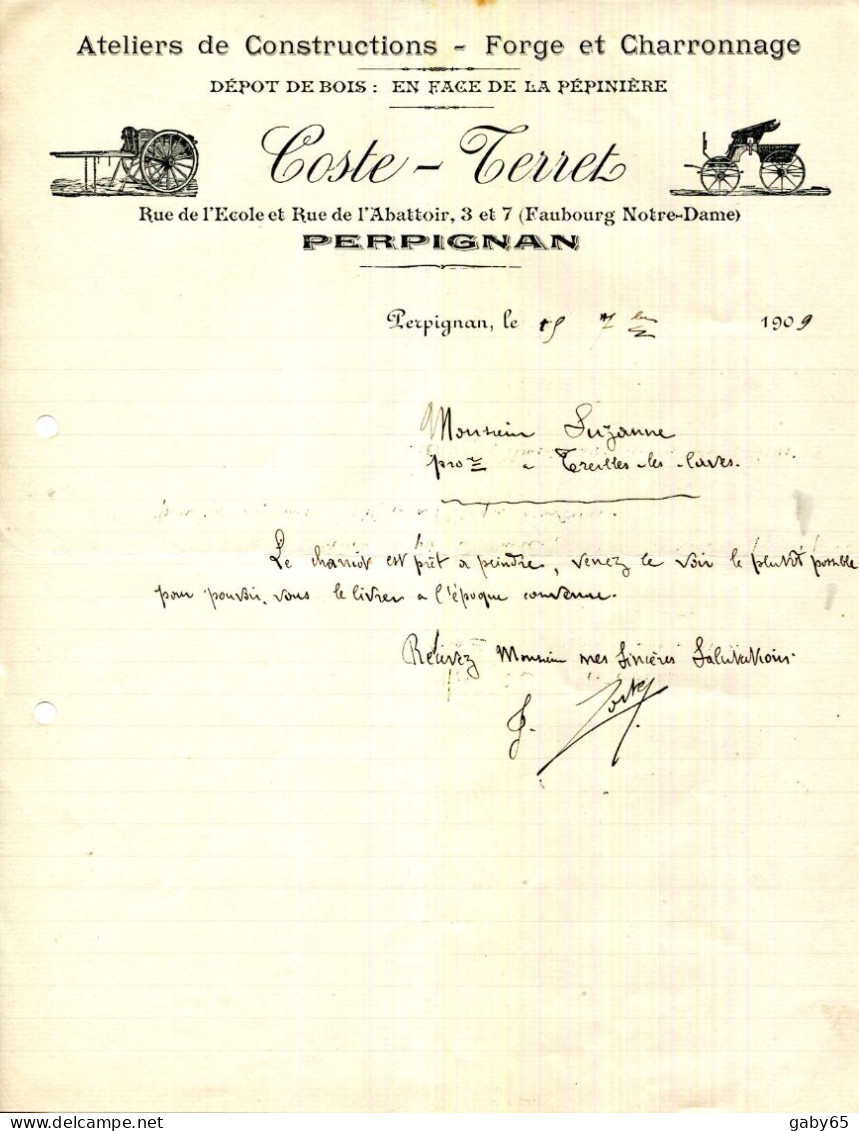 Ateliers de Constructions - Forge et Charronnage
DÉPOT DE BOIS : EN FACE DE LA PÉPINIÈRE
Coste - Terret
Rue de l'Ecole et Rue de l'Abattoir, 3 et 7 (Faubourg Notre-Dame)
PERPIGNAN
Perpignan, le 15 7bre 1909
Monsieur Suzanne
pro à Treilles-les-
Le charriot est prêt a peindre, venez le voir le plutôt possible
pour pouvoir, vous le livrer a l'époque convenue.
Recevez Monsieur mes Sincères Salutations.
J. Coste
gaby65